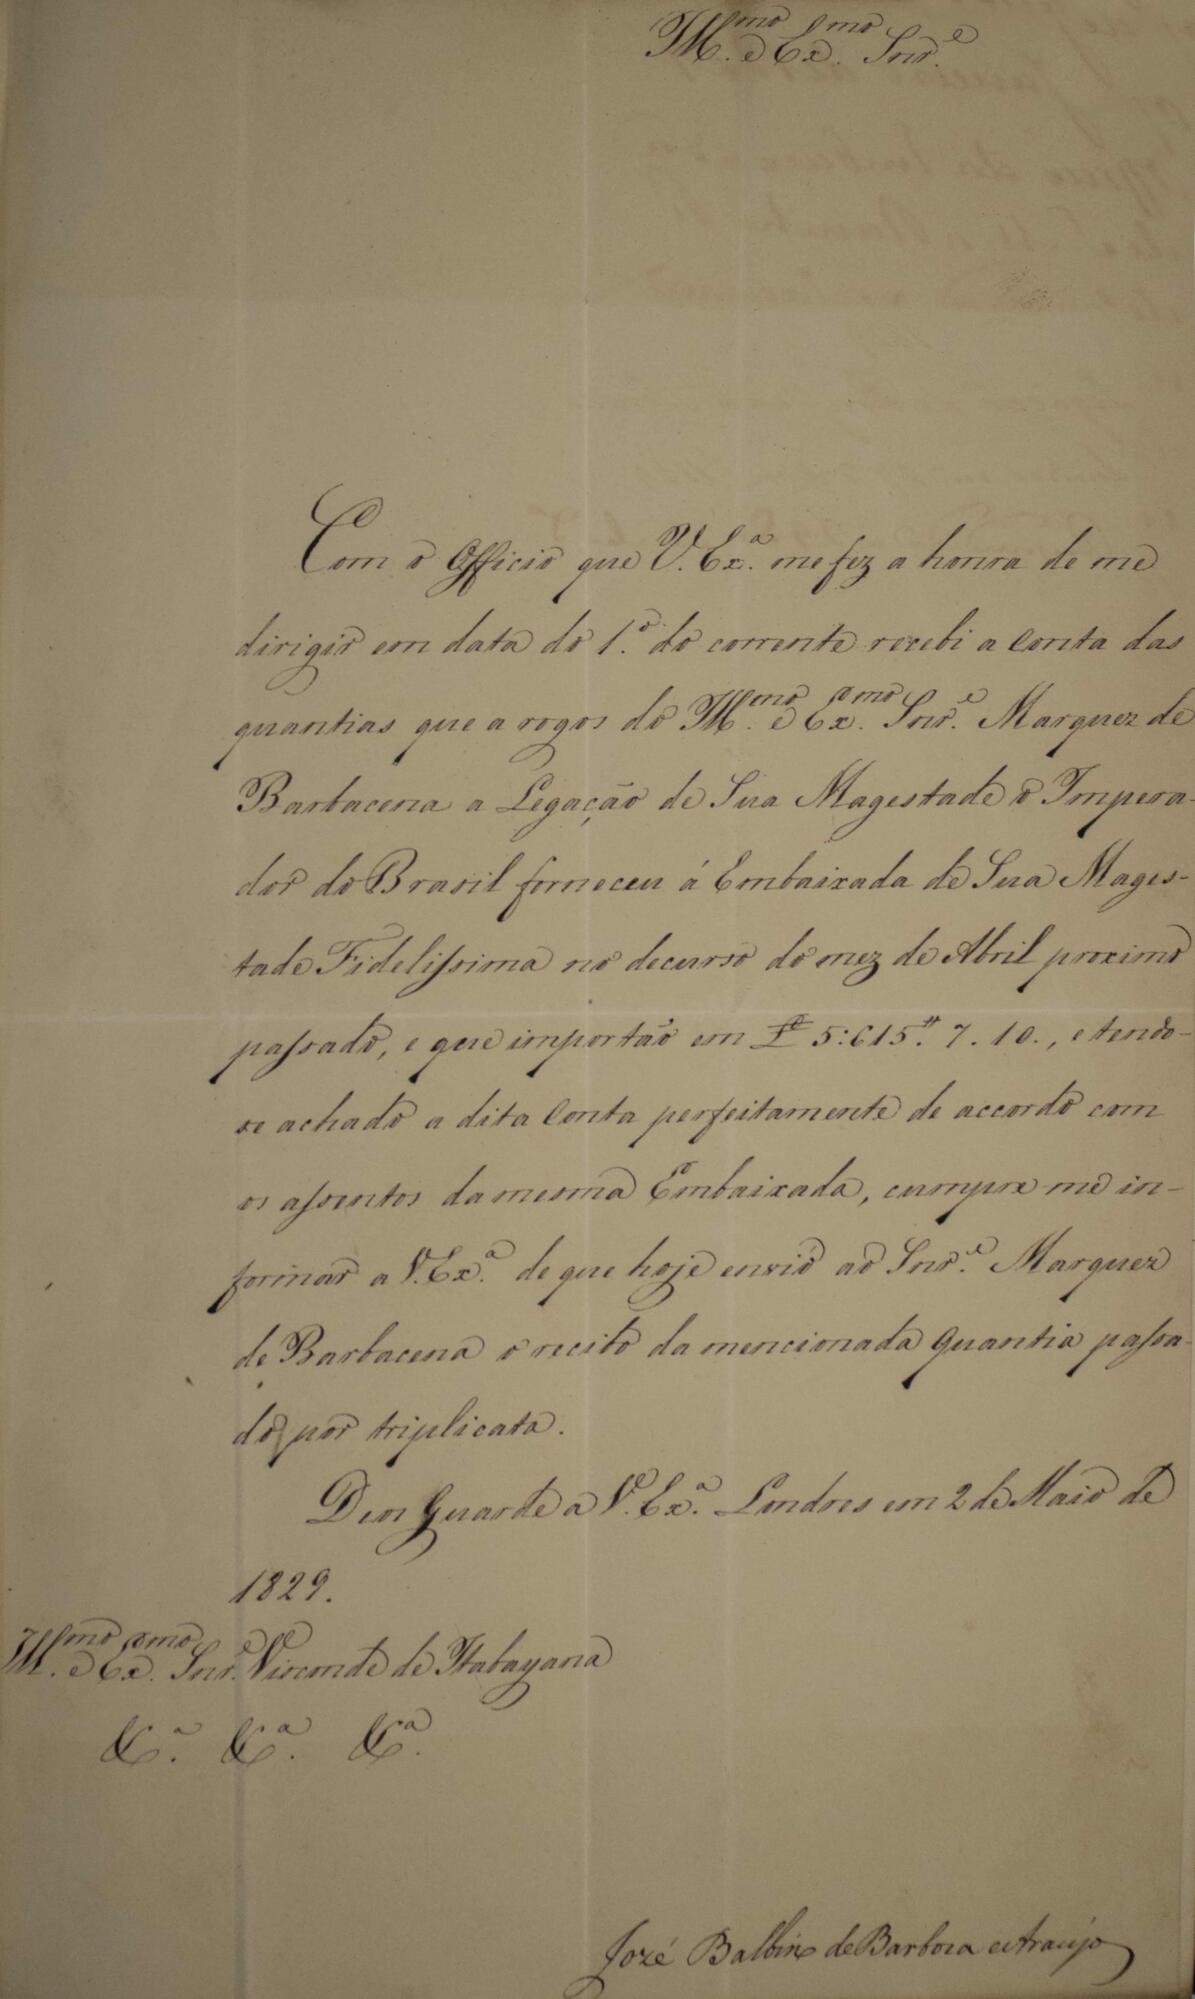 Ill.mo e Ex.mo Snr.e
Com o Officio que V. Ex.a me fez a honra de me
dirigir em data do 1.o do corrente recebi a Conta das
quantias que a rogos do Ill.mo e Ex.mo Snr.e Marquez de
Barbacena a Legação de Sua Magestade o Impera-
dor do Brasil forneceu á Embaixada de Sua Mages-
tade Fidelissima no decurso do mez de Abril proximo
passado, e que importão em £ 5:615." 7. 10., e tendo-
se achado a dita Conta perfeitamente de accordo com
os assentos da mesma Embaixada, cumpre-me in-
formar a V. Ex.a de que hoje envio ao Snr.e Marquez
de Barbacena o recibo da mencionada quantia passa-
do por triplicata.
Deos Guarde a V. Ex.a Londres em 2 de Maio de
1829.
Ill.mo e Ex.mo Snr.e Visconde de Itabayana
&C.a &C.a &C.a
Jozé Balbino de Barboza e Araujo